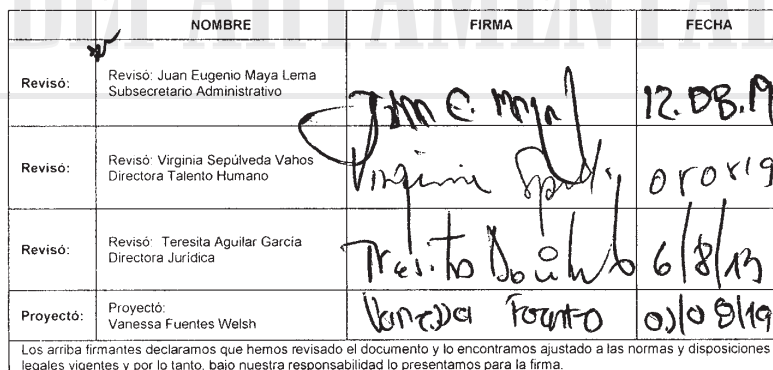 DEPARTAMENTAL
NOMBRE FIRMA FECHA
Revisó: Revisó: Juan Eugenio Maya Lema
Subsecretario Administrativo
Juan E. Maya 12.08.19
Revisó: Revisó: Virginia Sepúlveda Vahos
Directora Talento Humano
Virginia
Revisó: Revisó: Teresita Aguilar García
Directora Jurídica
Teresita 6/8/19
Proyectó: Proyectó:
Vanessa Fuentes Welsh
Vanessa /08/19
Los arriba firmantes declaramos que hemos revisado el documento y lo encontramos ajustado a las normas y disposiciones
legales vigentes y por lo tanto, bajo nuestra responsabilidad lo presentamos para la firma.